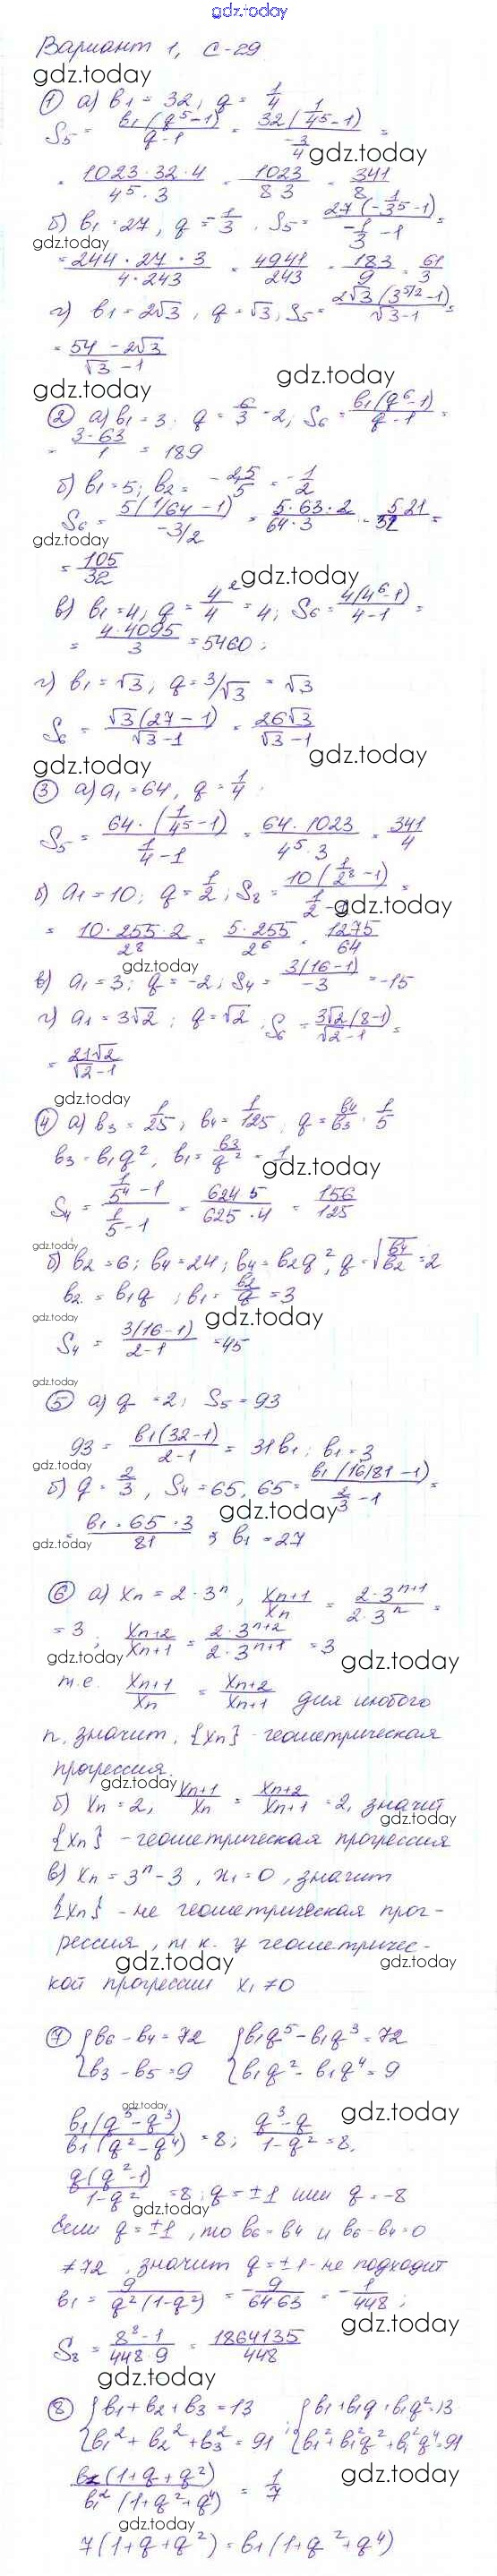 gdz.today
Вариант 1, С-29
gdz.today
① а) b₁ = 32, q = 1/4
S₅ = b₁(q⁵-1)/(q-1) = 32(1/4⁵-1)/(-3/4) =
gdz.today
= 1023·32·4/(4⁵·3) = 1023/(8·3) = 341/8
б) b₁ = 27, q = -1/3, S₅ = 27(-1/3⁵-1)/(-1/3-1) =
gdz.today
= 244·27·3/(4·243) = 4941/243 = 183/9 = 61/3
г) b₁ = 2√3, q = √3, S₅ = 2√3(3^(5/2)-1)/(√3-1) =
= (54-2√3)/(√3-1)
gdz.today
gdz.today
② а) b₁ = 3; q = 6/3 = 2; S₆ = b₁(q⁶-1)/(q-1) =
= 3·63/1 = 189
б) b₁ = 5; b₂ = -2,5/5 = -1/2
S₆ = 5(1/64-1)/(-3/2) = 5·63·2/(64·3) = 5·21/32 =
gdz.today
= 105/32
gdz.today
в) b₁ = 4; q = 4²/4 = 4; S₆ = 4(4⁶-1)/(4-1) =
= 4·4095/3 = 5460;
г) b₁ = √3; q = 3/√3 = √3
S₆ = √3(27-1)/(√3-1) = 26√3/(√3-1)
gdz.today
gdz.today
③ а) a₁ = 64, q = 1/4
S₅ = 64·(1/4⁵-1)/(1/4-1) = 64·1023/(4⁵·3) = 341/4
б) a₁ = 10; q = 1/2; S₈ = 10(1/2⁸-1)/(1/2-1) =
gdz.today
= 10·255·2/2⁸ = 5·255/2⁶ = 1275/64
gdz.today
в) a₁ = 3; q = -2; S₄ = 3(16-1)/(-3) = -15
г) a₁ = 3√2; q = √2; S₆ = 3√2(8-1)/(√2-1) =
= 21√2/(√2-1)
gdz.today
④ а) b₃ = 1/25; b₄ = 1/125; q = b₄/b₃ = 1/5
b₃ = b₁q², b₁ = b₃/q² = 1
gdz.today
S₄ = (1/5⁴-1)/(1/5-1) = 624·5/(625·4) = 156/125
gdz.today
б) b₂ = 6; b₄ = 24; b₄ = b₂q², q = √(b₄/b₂) = 2
b₂ = b₁q; b₁ = b₂/q = 3
gdz.today
gdz.today
S₄ = 3(16-1)/(2-1) = 45
gdz.today
⑤ а) q = 2; S₅ = 93
93 = b₁(32-1)/(2-1) = 31b₁; b₁ = 3
gdz.today
б) q = 2/3, S₄ = 65, 65 = b₁(16/81-1)/(2/3-1) =
gdz.today
= b₁·65·3/81 ⇒ b₁ = 27
gdz.today
⑥ а) xₙ = 2·3ⁿ, xₙ₊₁/xₙ = 2·3ⁿ⁺¹/(2·3ⁿ) =
= 3; xₙ₊₂/xₙ₊₁ = 2·3ⁿ⁺²/(2·3ⁿ⁺¹) = 3
gdz.today
gdz.today
т.е. xₙ₊₁/xₙ = xₙ₊₂/xₙ₊₁ для любого
n, значит, {xₙ} - геометрическая
прогрессия.
gdz.today
б) xₙ = 2, xₙ₊₁/xₙ = xₙ₊₂/xₙ₊₁ = 2, значит
gdz.today
{xₙ} - геометрическая прогрессия
в) xₙ = 3ⁿ-3, x₁ = 0, значит
{xₙ} - не геометрическая прог-
рессия, т.к. у геометричес-
gdz.today
gdz.today
кой прогрессии x₁ ≠ 0
⑦ {b₆-b₄ = 72 {b₁q⁵-b₁q³ = 72
{b₃-b₅ = 9 {b₁q²-b₁q⁴ = 9
gdz.today
gdz.today
b₁(q⁵-q³)/(b₁(q²-q⁴)) = 8; (q³-q)/(1-q²) = 8,
q(q²-1)/(1-q²) = 8; q = ±1 или q = -8
gdz.today
Если q = ±1, то b₆ = b₄ и b₆-b₄ = 0
≠ 72, значит q = ±1 - не подходит
b₁ = 9/(q²(1-q²)) = -9/(64·63) = -1/448;
gdz.today
S₈ = (8⁸-1)/(448·9) = 1864135/448
gdz.today
⑧ {b₁+b₂+b₃ = 13 {b₁+b₁q+b₁q² = 13
{b₁²+b₂²+b₃² = 91; {b₁²+b₁²q²+b₁²q⁴ = 91
b₁(1+q+q²)/(b₁²(1+q²+q⁴)) = 1/7
gdz.today
gdz.today
7(1+q+q²) = b₁(1+q²+q⁴)